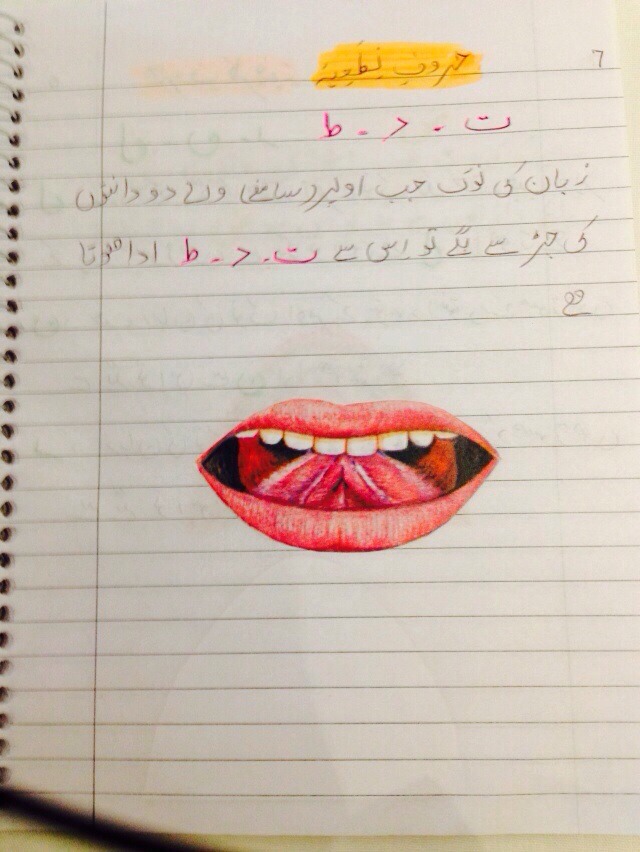 7
حروفِ نطعیہ
ت ۔ د ۔ ط
زبان کی نوک جب اوپر (سامنے) والے دو دانتوں
کی جڑ سے لگے تو اس سے ت ۔ د ۔ ط ادا ھوتا
ھے